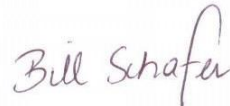 Bill Schafer